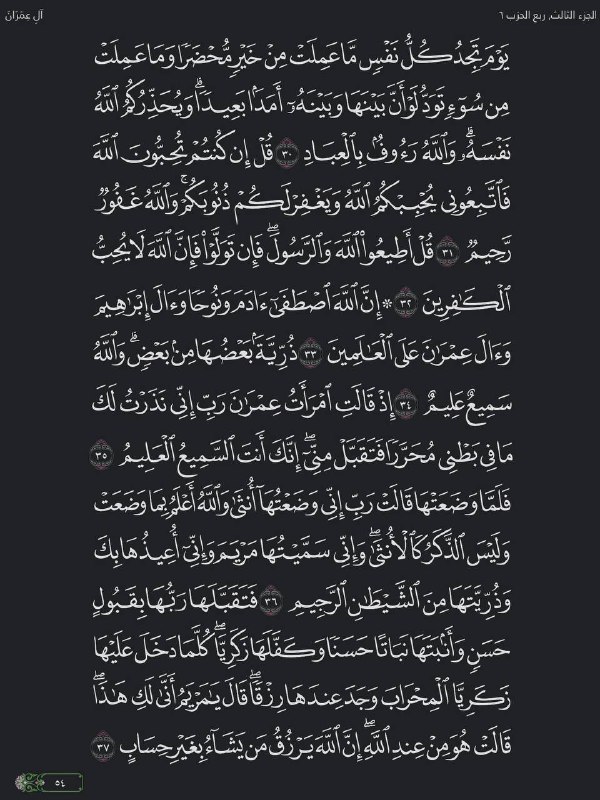 الجزء الثالث، ربع الحزب ٦
آلِ عِمۡرَانَ
يَوۡمَ تَجِدُ كُلُّ نَفۡسٖ مَّا عَمِلَتۡ مِنۡ خَيۡرٖ مُّحۡضَرٗا وَمَا عَمِلَتۡ
مِن سُوٓءٖ تَوَدُّ لَوۡ أَنَّ بَيۡنَهَا وَبَيۡنَهُۥٓ أَمَدَۢا بَعِيدٗاۗ وَيُحَذِّرُكُمُ ٱللَّهُ
نَفۡسَهُۥۗ وَٱللَّهُ رَءُوفُۢ بِٱلۡعِبَادِ ٣٠ قُلۡ إِن كُنتُمۡ تُحِبُّونَ ٱللَّهَ
فَٱتَّبِعُونِي يُحۡبِبۡكُمُ ٱللَّهُ وَيَغۡفِرۡ لَكُمۡ ذُنُوبَكُمۡۚ وَٱللَّهُ غَفُورٞ
رَّحِيمٞ ٣١ قُلۡ أَطِيعُواْ ٱللَّهَ وَٱلرَّسُولَۖ فَإِن تَوَلَّوۡاْ فَإِنَّ ٱللَّهَ لَا يُحِبُّ
ٱلۡكَٰفِرِينَ ٣٢ ۞ إِنَّ ٱللَّهَ ٱصۡطَفَىٰٓ ءَادَمَ وَنُوحٗا وَءَالَ إِبۡرَٰهِيمَ
وَءَالَ عِمۡرَٰنَ عَلَى ٱلۡعَٰلَمِينَ ٣٣ ذُرِّيَّةَۢ بَعۡضُهَا مِنۢ بَعۡضٖۗ وَٱللَّهُ
سَمِيعٌ عَلِيمٌ ٣٤ إِذۡ قَالَتِ ٱمۡرَأَتُ عِمۡرَٰنَ رَبِّ إِنِّي نَذَرۡتُ لَكَ
مَا فِي بَطۡنِي مُحَرَّرٗا فَتَقَبَّلۡ مِنِّيٓۖ إِنَّكَ أَنتَ ٱلسَّمِيعُ ٱلۡعَلِيمُ ٣٥
فَلَمَّا وَضَعَتۡهَا قَالَتۡ رَبِّ إِنِّي وَضَعۡتُهَآ أُنثَىٰ وَٱللَّهُ أَعۡلَمُ بِمَا وَضَعَتۡ
وَلَيۡسَ ٱلذَّكَرُ كَٱلۡأُنثَىٰۖ وَإِنِّي سَمَّيۡتُهَا مَرۡيَمَ وَإِنِّيٓ أُعِيذُهَا بِكَ
وَذُرِّيَّتَهَا مِنَ ٱلشَّيۡطَٰنِ ٱلرَّجِيمِ ٣٦ فَتَقَبَّلَهَا رَبُّهَا بِقَبُولٍ
حَسَنٖ وَأَنۢبَتَهَا نَبَاتًا حَسَنٗا وَكَفَّلَهَا زَكَرِيَّاۖ كُلَّمَا دَخَلَ عَلَيۡهَا
زَكَرِيَّا ٱلۡمِحۡرَابَ وَجَدَ عِندَهَا رِزۡقٗاۖ قَالَ يَٰمَرۡيَمُ أَنَّىٰ لَكِ هَٰذَاۖ
قَالَتۡ هُوَ مِنۡ عِندِ ٱللَّهِۖ إِنَّ ٱللَّهَ يَرۡزُقُ مَن يَشَآءُ بِغَيۡرِ حِسَابٍ ٣٧
٥٤